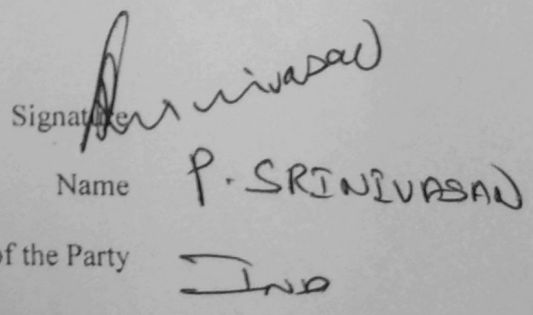 Signature Srinivasan
Name P. SRINIVASAN
of the Party IND